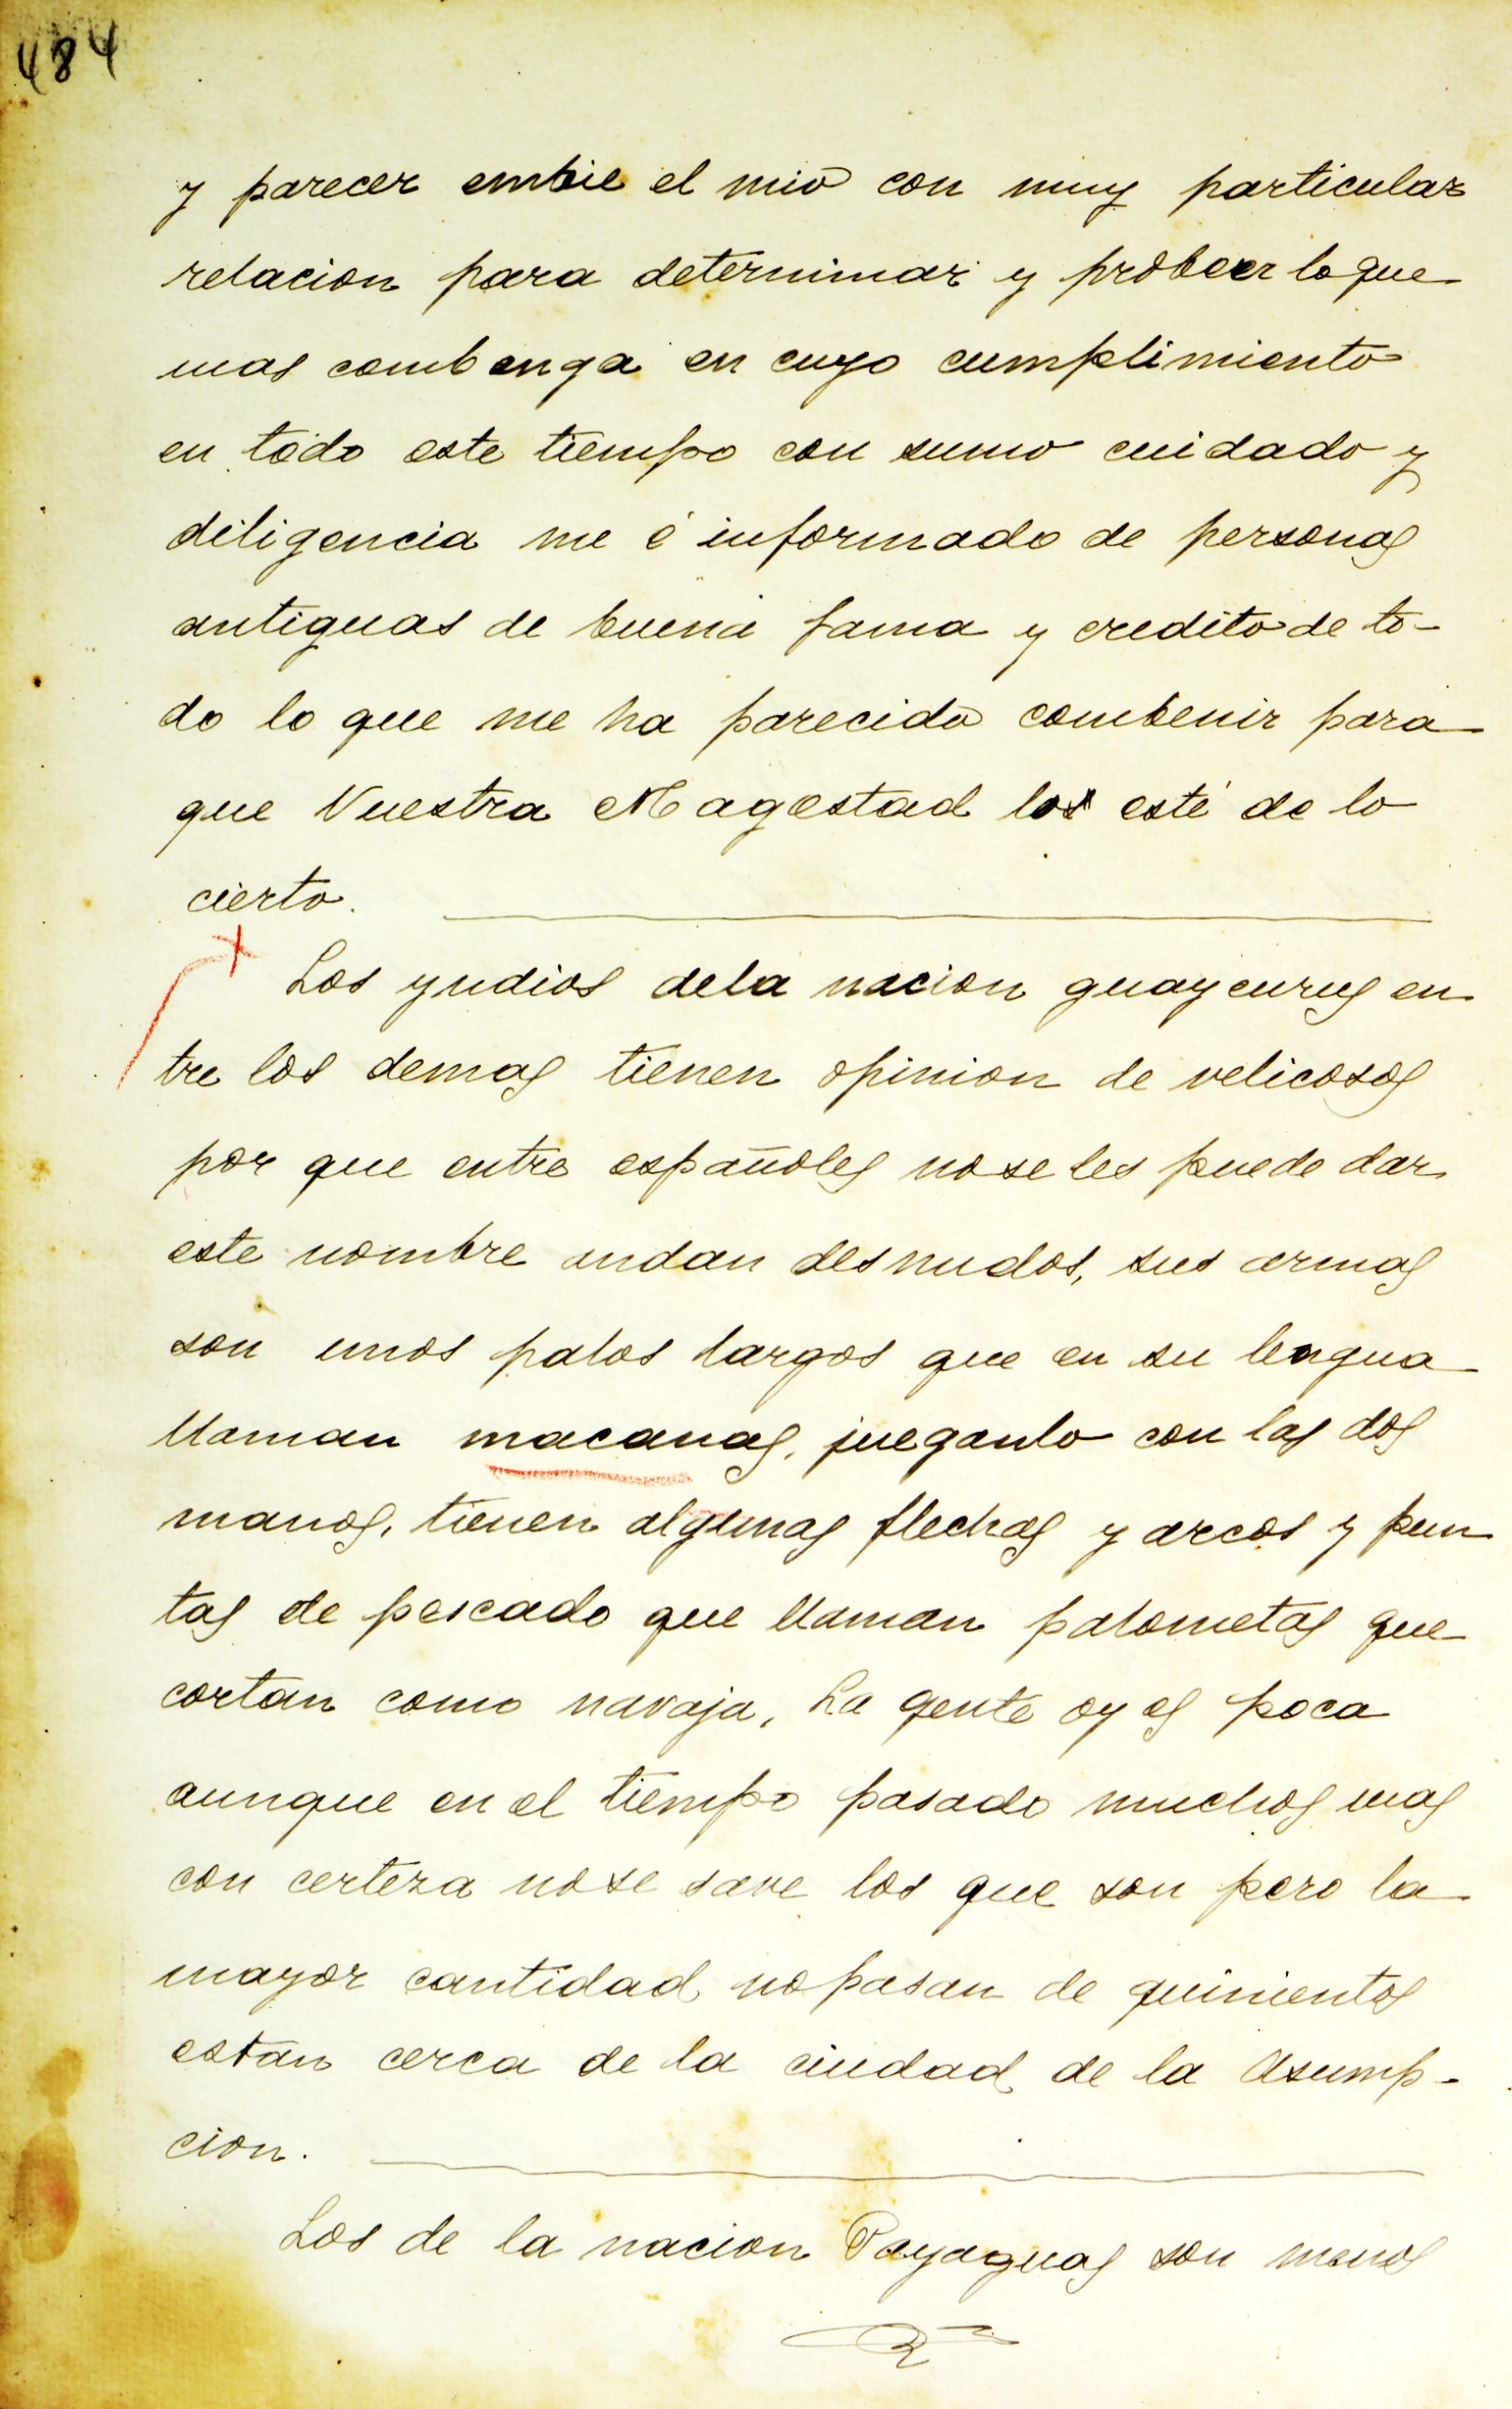 484
y parecer embie el mio con muy particular
relacion para determinar y probeer lo que
mas combenga en cuyo cumplimiento
en todo este tiempo con sumo cuidado y
diligencia me é informado de personas
antiguas de buena fama y credito de to-
do lo que me ha parecido combenir para
que Vuestra Magestad los esté de lo
cierto.
Los yndios dela nacion guaycurus en
tre los demas tienen opinion de velicosos
por que entre españoles no se les puede dar
este nombre andan desnudos, sus armas
son unos palos largos que en su lengua
llaman macanas, jueganlo con las dos
manos, tienen algunas flechas y arcos y pun
tas de pescado que llaman palometas que
cortan como navaja, La gente oy es poca
aunque en el tiempo pasado muchos mas
con certeza no se save los que son pero la
mayor cantidad no pasan de quinientos
estan cerca de la ciudad de la Asump-
cion.
Los de la nacion Payaguas son menos